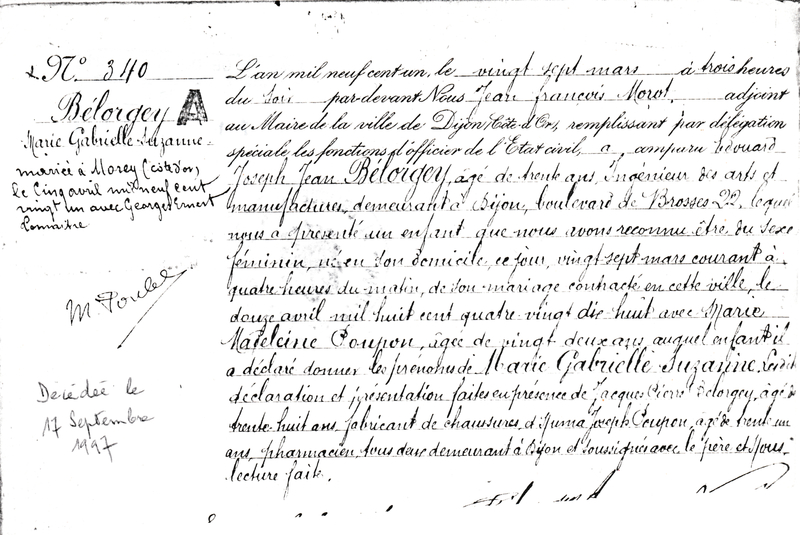 N° 340
Bélorgey A
Marie Gabrielle Suzanne
mariée à Morey (côte d'or)
le cinq avril mil neuf cent
vingt un avec Georges Ernest
Lemaitre
Décédée le
17 Septembre
1997
L'an mil neuf cent un, le vingt sept mars à trois heures
du soir par-devant Nous Jean françois Morot, adjoint
au Maire de la ville de Dijon, Côte d'Or, remplissant par délégation
spéciale, les fonctions d'officier de l'Etat civil, a comparu Edouard
Joseph Jean Bélorgey, âgé de trente ans, Ingénieur des arts et
manufactures, demeurant à Dijon, boulevard de Brosses 22, lequel
nous a présenté un enfant que nous avons reconnu être du sexe
féminin, né en son domicile, ce jour, vingt sept mars courant à
quatre heures du matin, de son mariage contracté en cette ville, le
douze avril mil huit cent quatre vingt dix huit avec Marie
Madeleine Poupon, âgée de vingt deux ans, auquel enfant il
a déclaré donner les prenoms de Marie Gabrielle Suzanne. Lesdites
déclaration et présentation faites en présence de Jacques Pierre Belorgey, âgé de
trente huit ans, fabricant de chaussures, et Joseph Poupon, âgé de trente un
ans, pharmacien, tous deux demeurant à Dijon et soussignés avec le père et Nous
lecture faite.